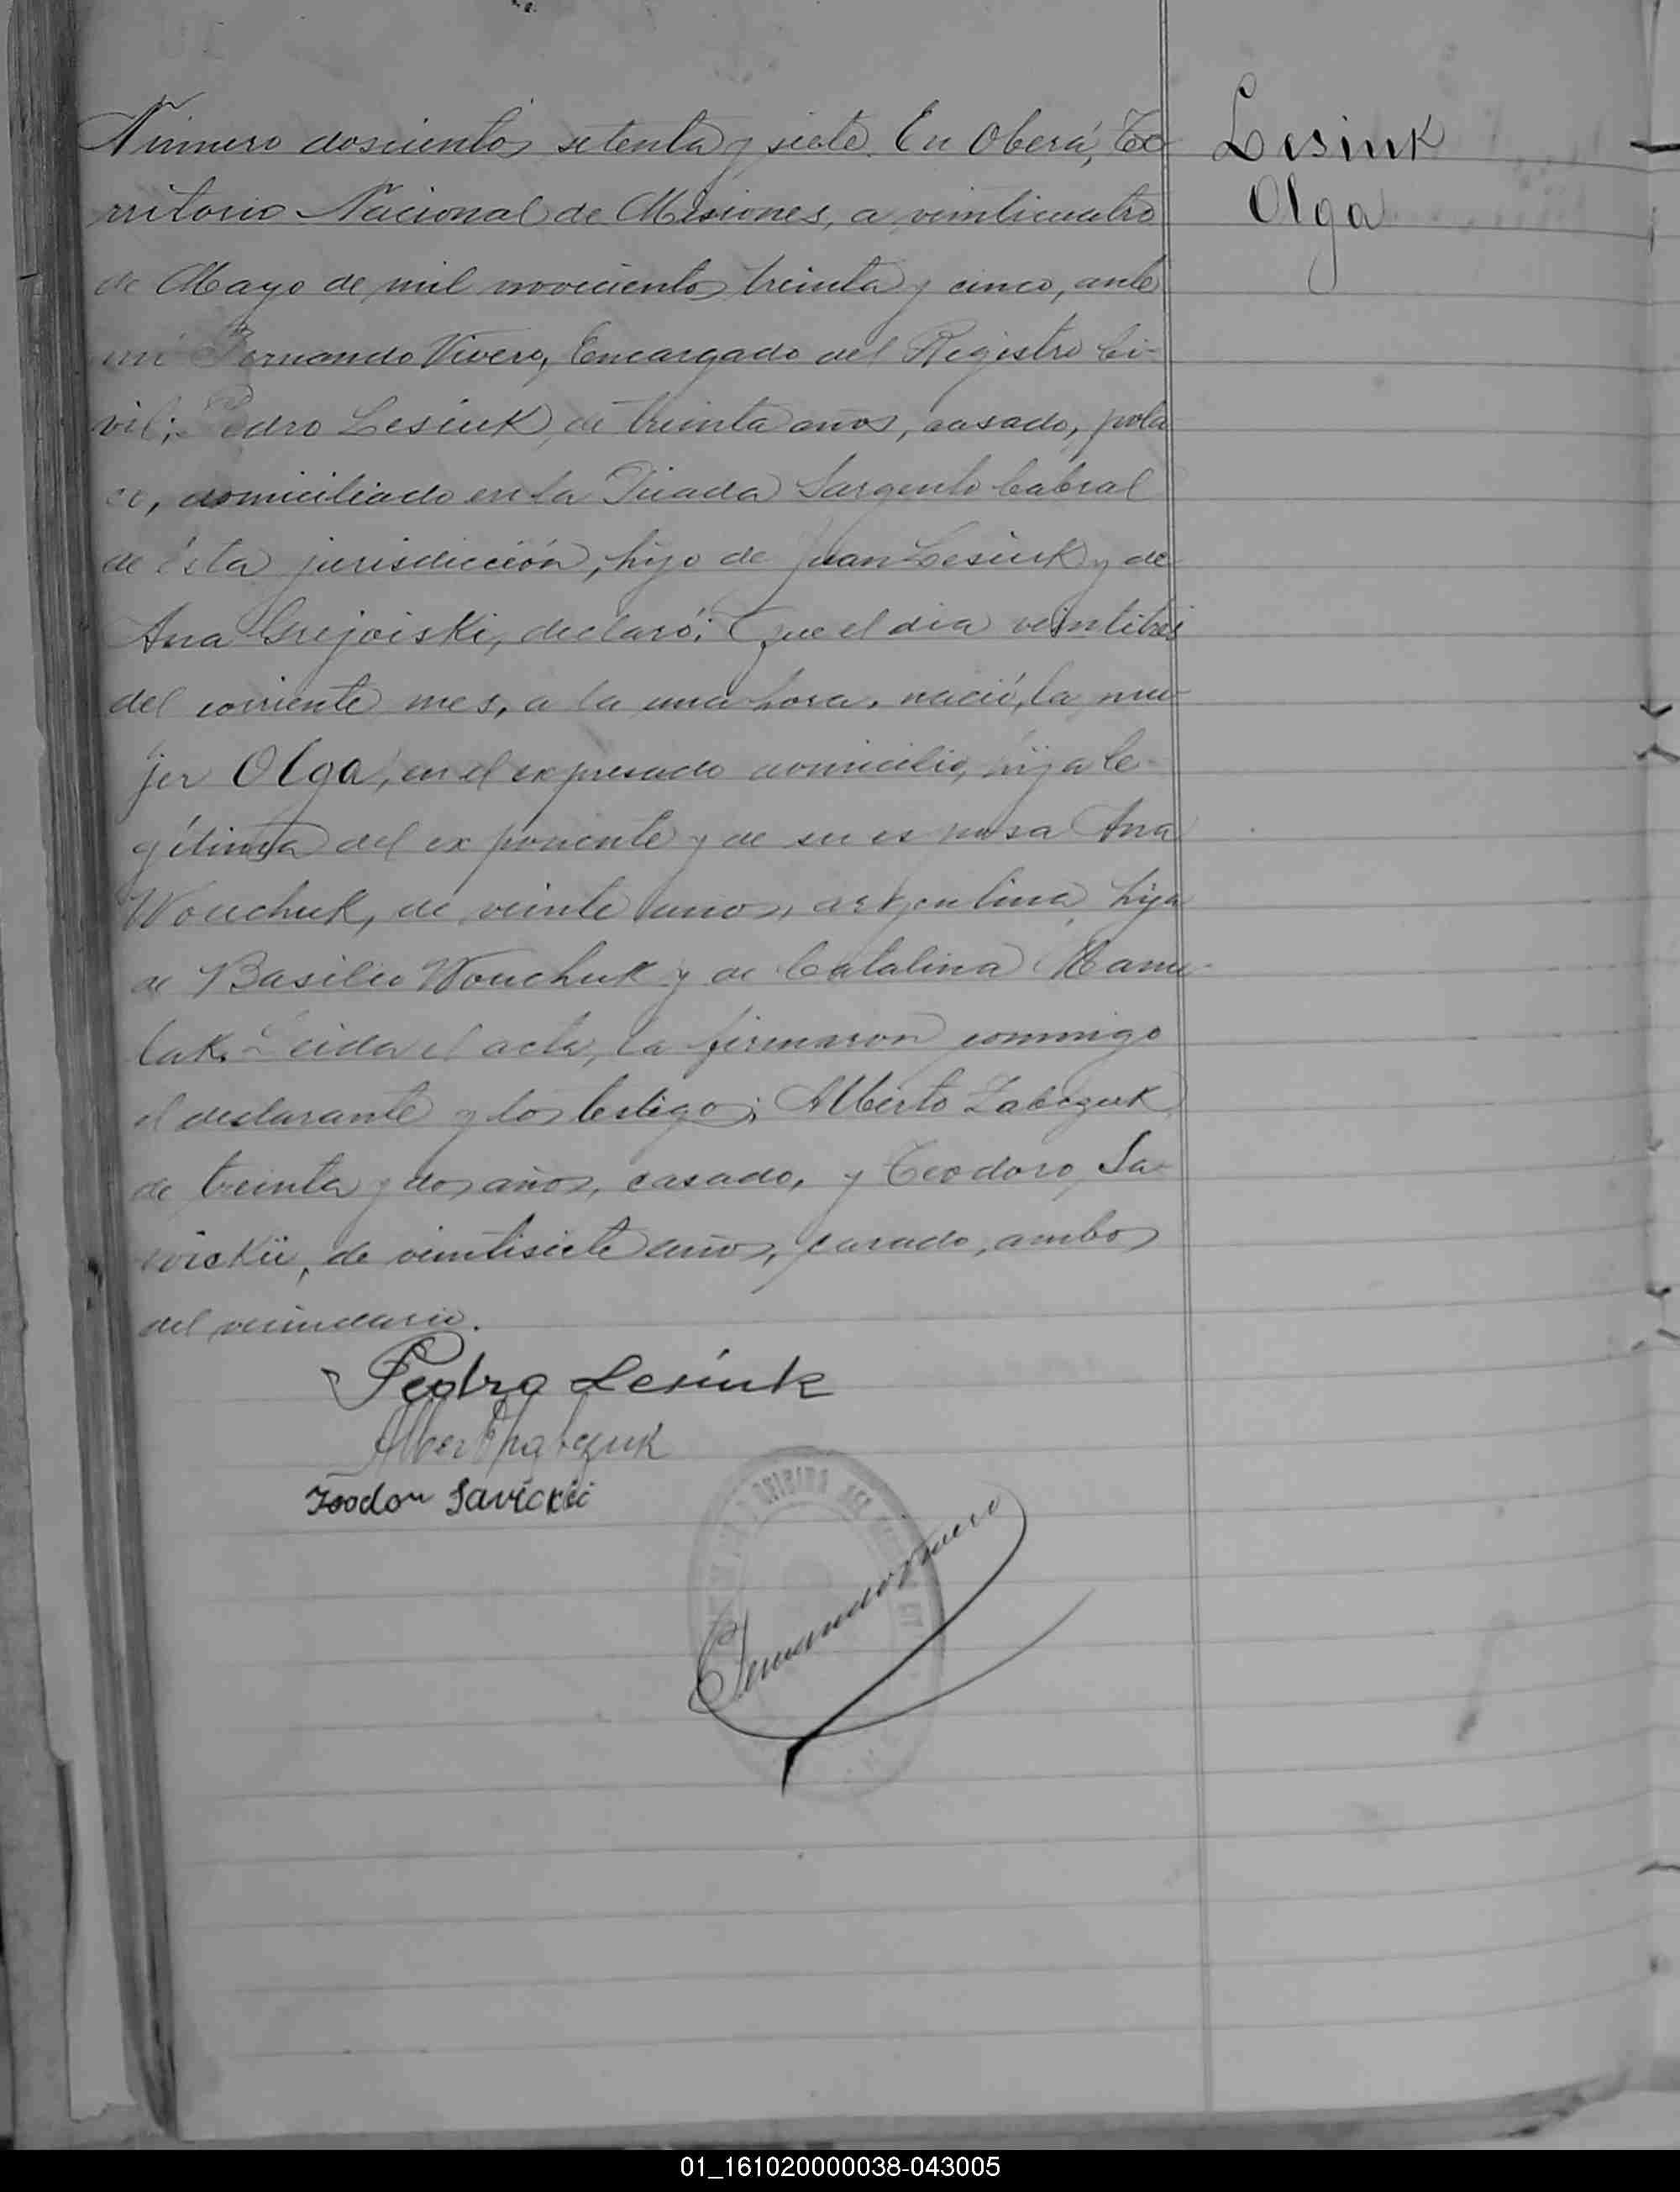 Número doscientos setenta y siete. En Oberá, Te-
rritorio Nacional de Misiones, a veinticuatro
de Mayo de mil novecientos treinta y cinco, ante
mí Fernando Vivero, Encargado del Registro Ci-
vil; Pedro Lesiuk, de treinta años, casado, pola-
co, domiciliado en la Picada Sargento Cabral
de ésta jurisdicción, hijo de Juan Lesiuk y de
Ana Grejoiski, declaró: Que el dia veintitres
del corriente mes, a la una hora, nació, la mu-
jer Olga, en el expresado domicilio, hija le-
gítima del exponente y de su esposa Ana
Wouchuk, de veinte años, argentina, hija
de Basilio Wouchuk y de Catalina Hamu-
lak. Leida el acta, la firmaron conmigo
el declarante y los testigos; Alberto Zabczuk
de treinta y dos años, casado, y Teodoro Sa-
wickii, de veintisiete años, casado, ambos
del vecindario.
Pedro Lesiuk
Teodor Savickii
Fernando Vivero
Lesiuk
Olga
01_161020000038-043005